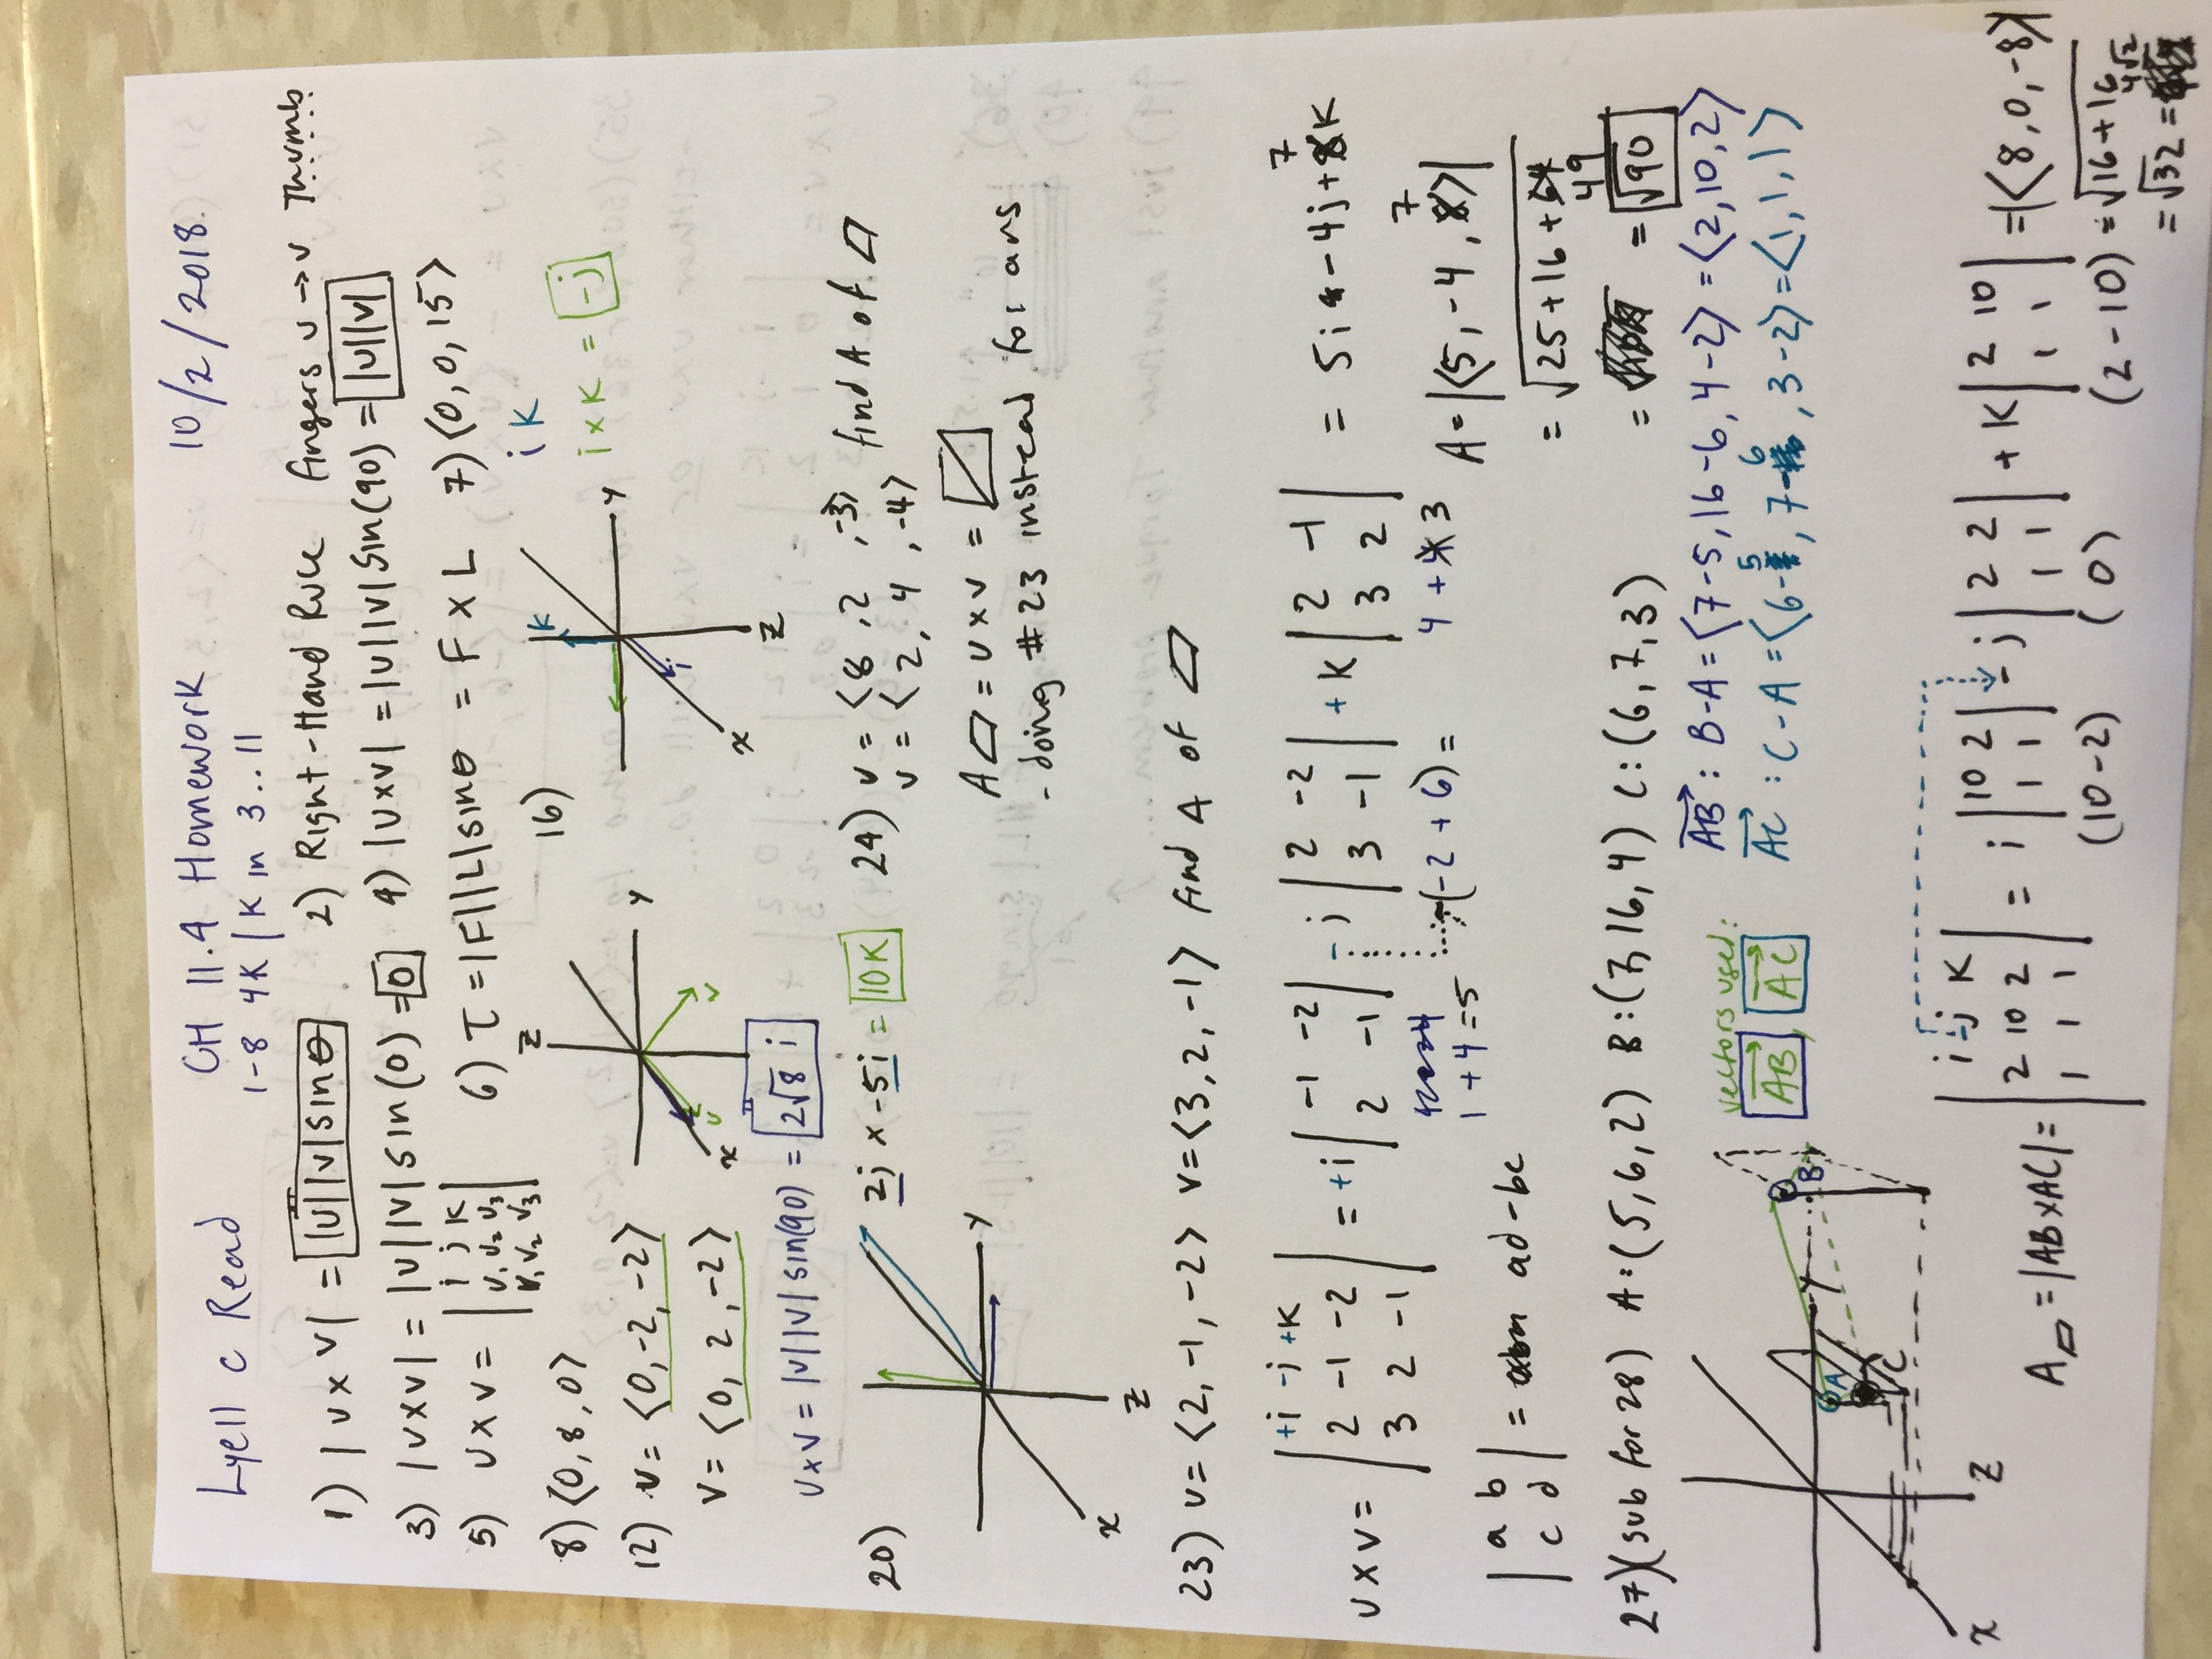 Lyell C Read CH 11.4 Homework 10/2/2018.
1-8 4K | K in 3..11
1) |u x v| = |u||v|sinθ 2) Right-Hand Rule fingers u → v Thumb
3) |u x v| = |u||v| sin(0) = 0 4) |u x v| = |u||v| sin(90) = |u||v|
5) u x v = | i j k | u₁ u₂ u₃ | v₁ v₂ v₃ | 6) τ = |F||L|sinθ = F x L 7) ⟨0, 0, 15⟩
8) ⟨0, 8, 0⟩ Z 16) K i K
Y i Y i x K = -j
12) u = ⟨0, -2, -2⟩
v = ⟨0, 2, -2⟩ x u v x
Z Z
u x v = |u||v| sin(90) = 2√8 i
20) 2j x -5i = 10K 24) u = ⟨8, 2, -3⟩ find A of ▱
v = ⟨2, 4, -4⟩
Y A▱ = u x v =
x - doing #23 instead for ans
Z
23) u = ⟨2, -1, -2⟩ v = ⟨3, 2, -1⟩ find A of ▱
u x v = | +i -j +K | 2 -1 -2 | 3 2 -1 | = +i | -1 -2 | 2 -1 | - j | 2 -2 | 3 -1 | + K | 2 -1 | 3 2 | = 5i - 4j + 7K
1 + 4 = 5 -(-2 + 6) = 4 + 3
A = |⟨5, -4, 7⟩|
| a b | c d | = ad - bc
= √25 + 16 + 49
= √90
27) (sub for 28) A: (5, 6, 2) B: (7, 16, 4) C: (6, 7, 3)
vectors used: AB, AC
AB : B-A = ⟨7-5, 16-6, 4-2⟩ = ⟨2, 10, 2⟩
AC : C-A = ⟨6-5, 7-6, 3-2⟩ = ⟨1, 1, 1⟩
Y A B C x Z
A▱ = |AB x AC| = | i -j K | 2 10 2 | 1 1 1 | = i | 10 2 | 1 1 | - j | 2 2 | 1 1 | + K | 2 10 | 1 1 | = |⟨8, 0, -8⟩|
(10 - 2) (0) (2 - 10) = √16 + 16
= √32 = 4√2